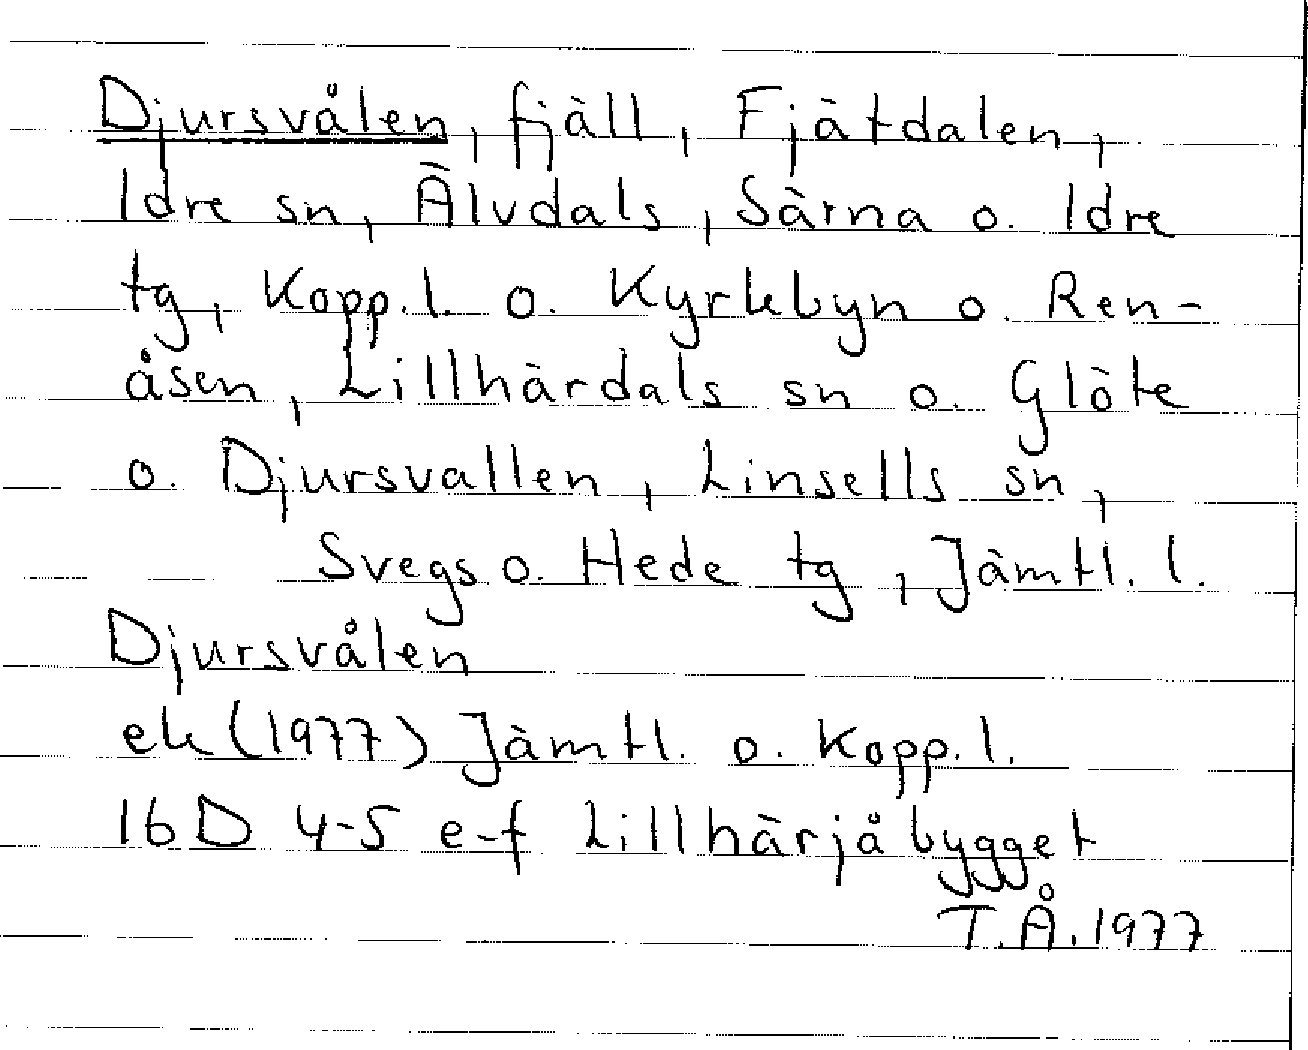 Djursvålen, fjäll, Fjätdalen,
Idre sn, Älvdals, Särna o. Idre
tg, Kopp.l. o. Kyrkbyn o. Ren-
åsen, Lillhärdals sn o. Glöte
o. Djursvallen, Linsells sn,
Svegs o. Hede tg, Jämtl. l.
Djursvålen
ek (1977) Jämtl. o. Kopp.l.
16D 4-5 e-f Lillhärjåbygget
T.Å. 1977